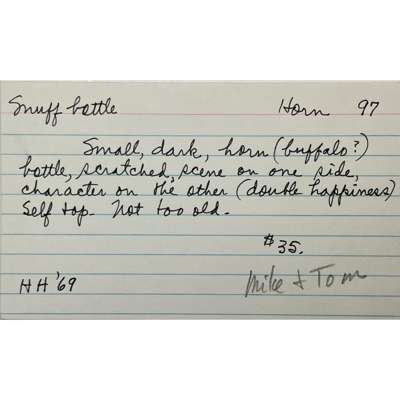 Snuff bottle Horn 97
Small, dark, horn (buffalo?)
bottle, scratched, scene on one side,
character on the other (double happiness)
Self top. Not too old.
$35.
HH '69 Mike + Tom